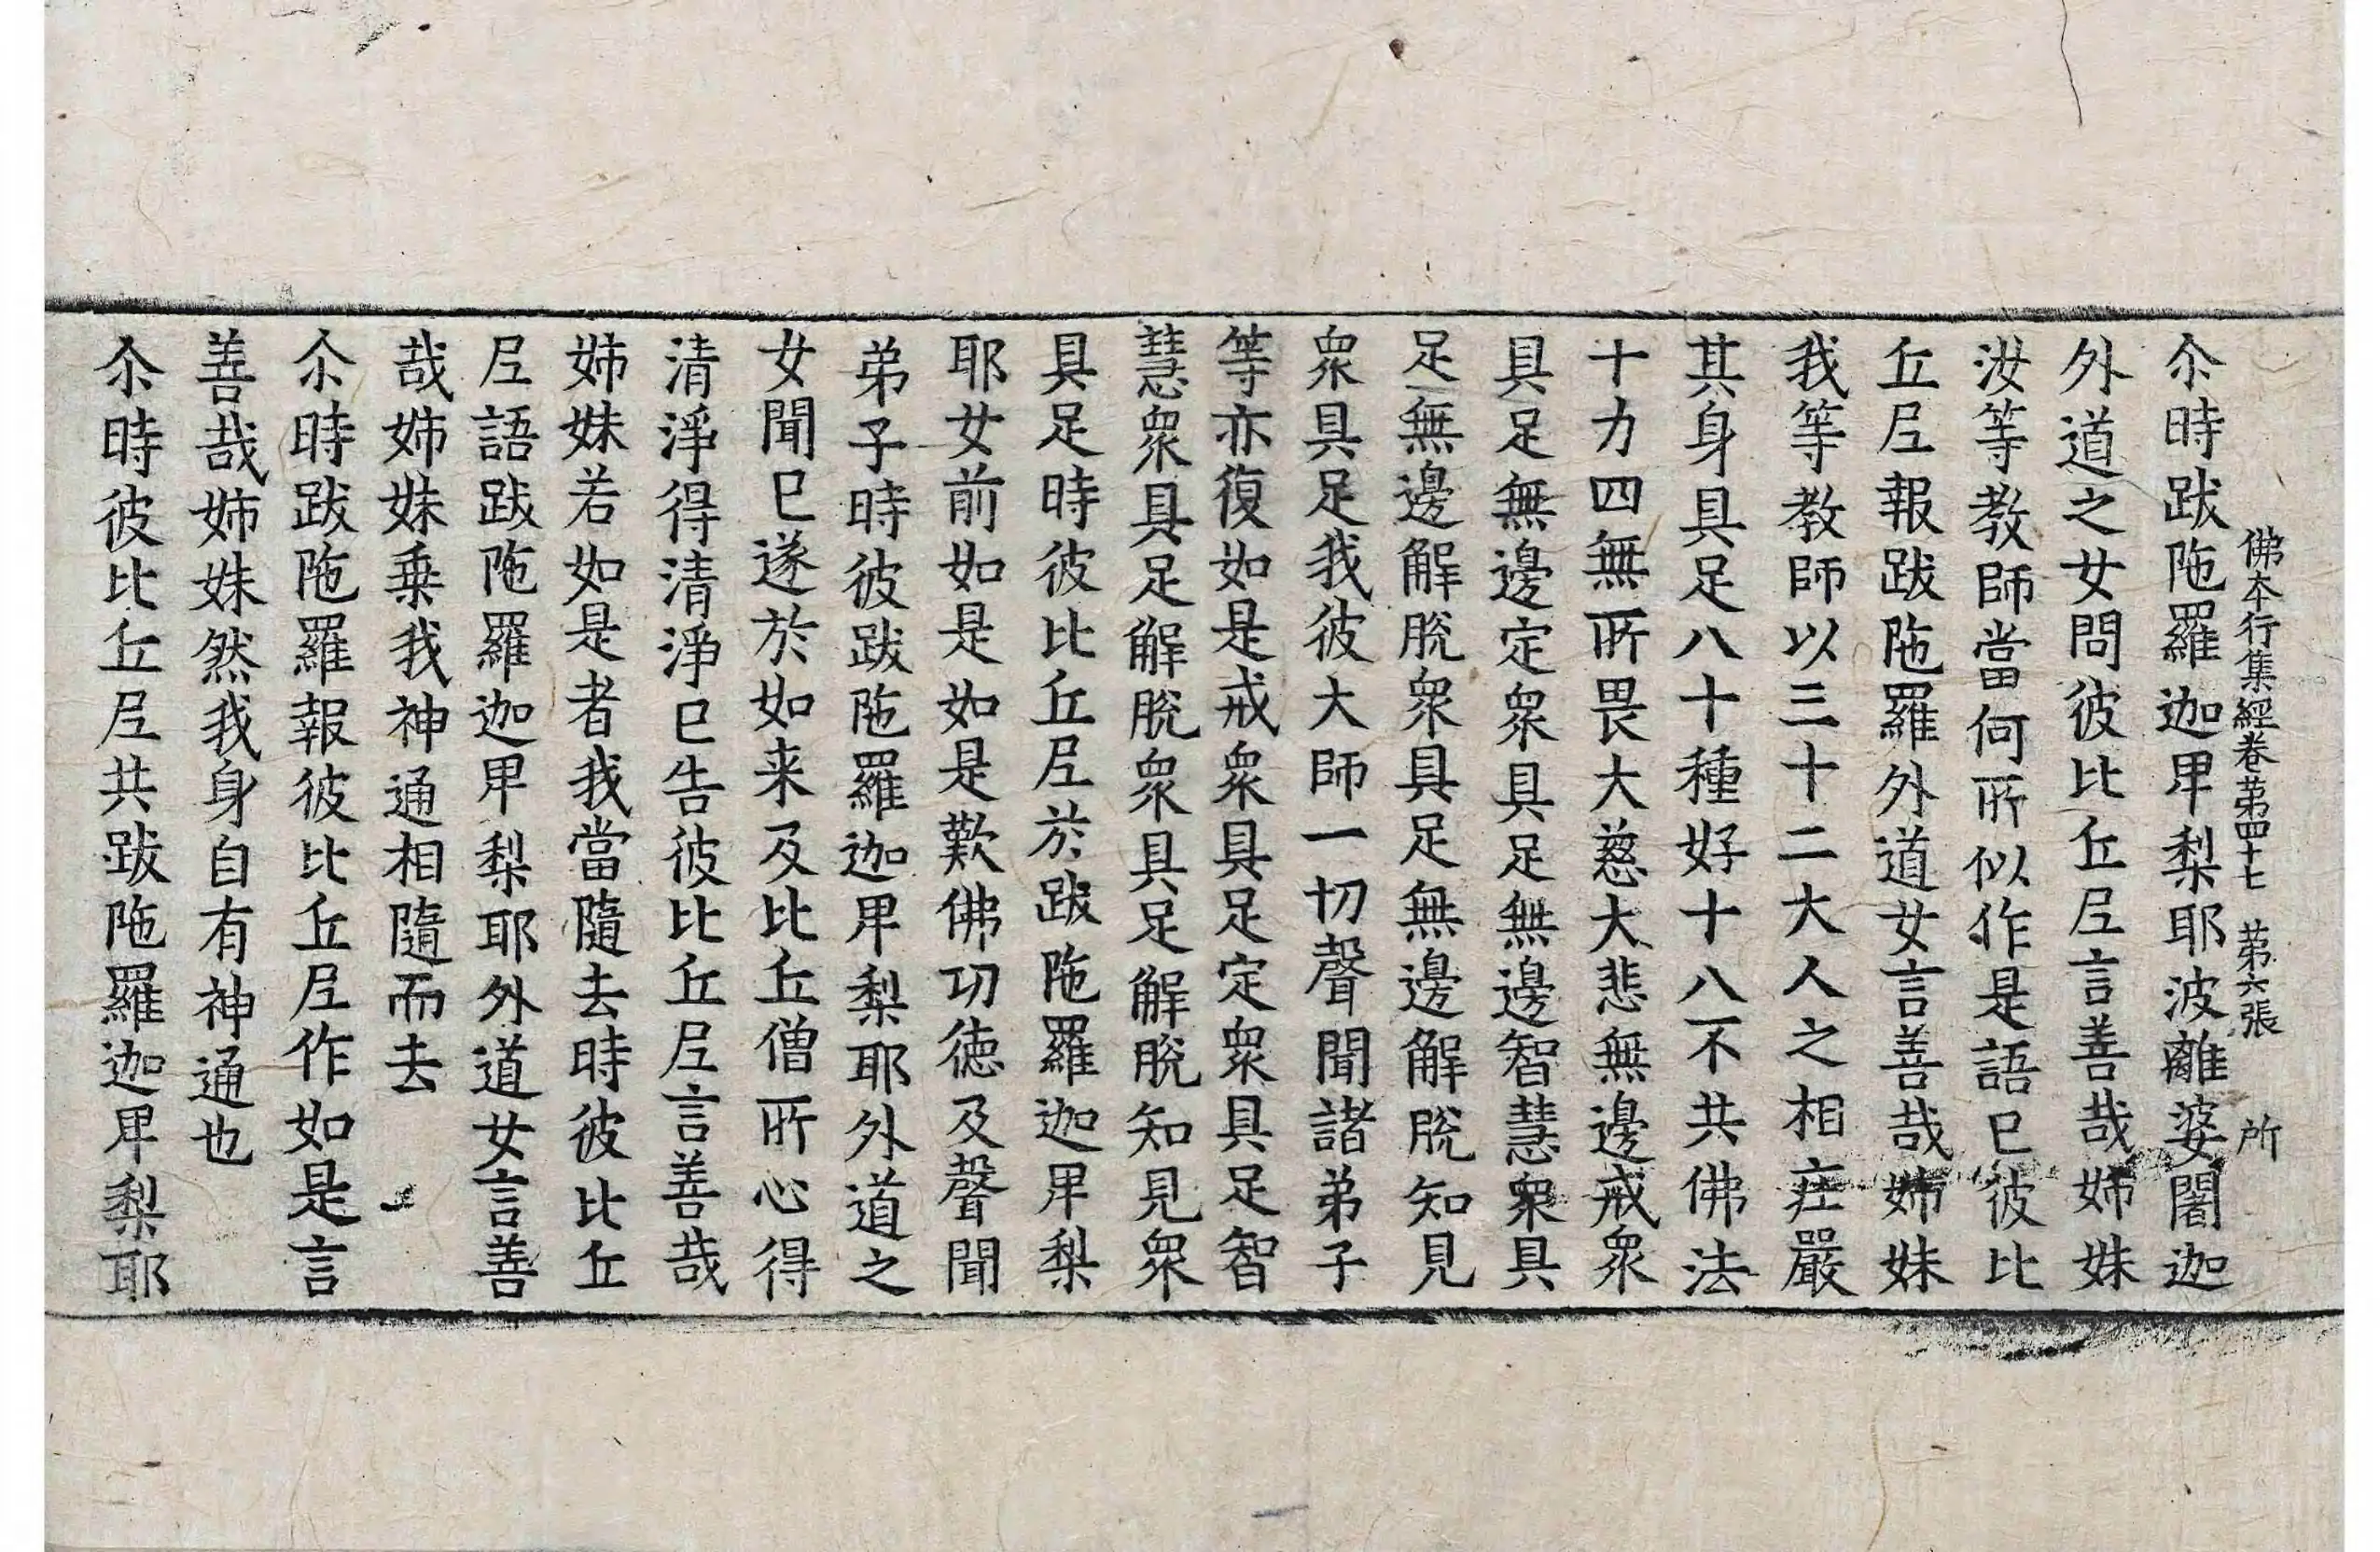 佛本行集經卷第四十七 第六張 所
尒時跋陁羅迦卑梨耶波離婆闍迦
外道之女問彼比丘尼言善哉姊妹
汝等教師當何所似作是語已彼比
丘尼報跋陁羅外道女言善哉姊妹
我等教師以三十二大人之相莊嚴
其身具足八十種好十八不共佛法
十力四無所畏大慈大悲無邊戒衆
具足無邊定衆具足無邊智慧衆具
足無邊解脫衆具足無邊解脫知見
衆具足我彼大師一切聲聞諸弟子
等亦復如是戒衆具足定衆具足智
慧衆具足解脫衆具足解脫知見衆
具足時彼比丘尼於跋陁羅迦卑梨
耶女前如是如是歎佛功德及聲聞
弟子時彼跋陁羅迦卑梨耶外道之
女聞已遂於如来及比丘僧所心得
清淨得清淨已告彼比丘尼言善哉
姊妹若如是者我當隨去時彼比丘
尼語跋陁羅迦卑梨耶外道女言善
哉姊妹乗我神通相隨而去
尒時跋陁羅報彼比丘尼作如是言
善哉姊妹然我身自有神通也
尒時彼比丘尼共跋陁羅迦卑梨耶